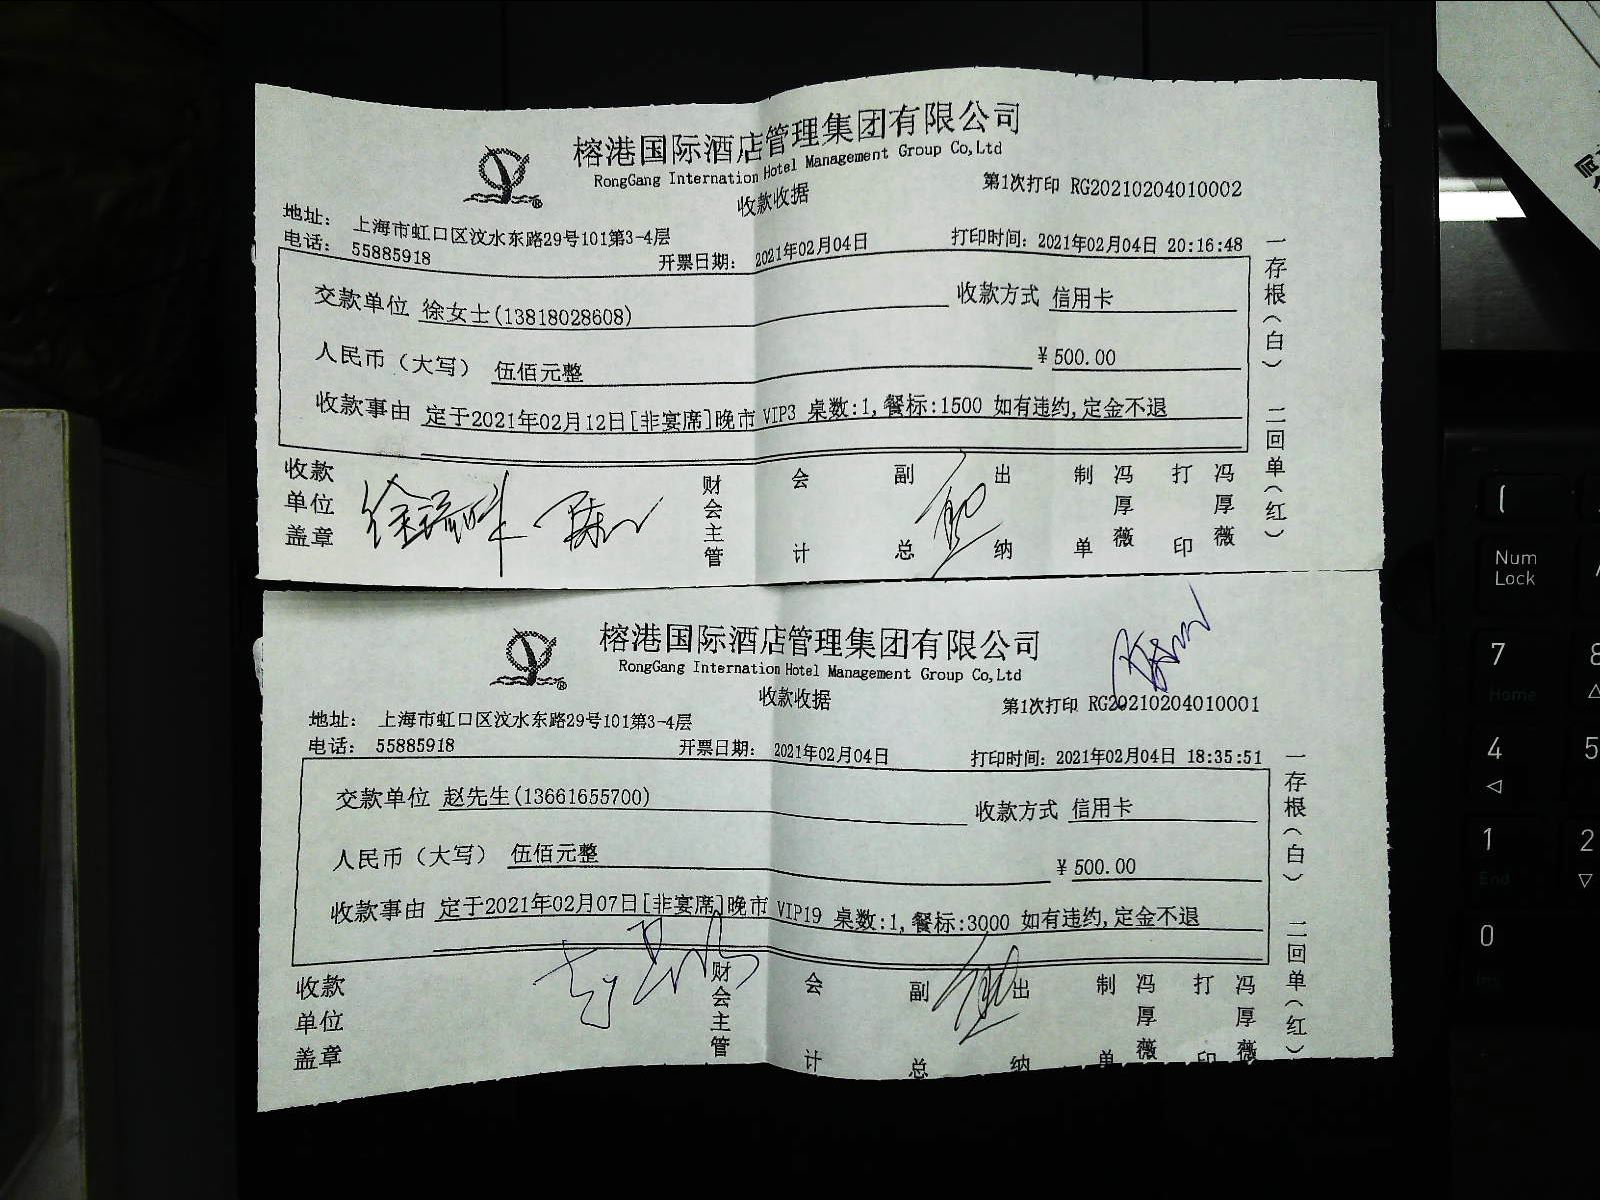 榕港国际酒店管理集团有限公司
RongGang Internation Hotel Management Group Co,Ltd
收款收据
第1次打印 RG20210204010002
地址： 上海市虹口区汶水东路29号101第3-4层
电话： 55885918
开票日期： 2021年02月04日
打印时间: 2021年02月04日 20:16:48
交款单位 徐女士(13818028608)
收款方式 信用卡
人民币（大写） 伍佰元整
¥ 500.00
收款事由 定于2021年02月12日[非宴席]晚市 VIP3 桌数:1,餐标:1500 如有违约,定金不退
收款单位盖章
财会主管
会计
副总
出纳
制单
冯厚薇
打印
冯厚薇
一存根（白） 二回单（红）
榕港国际酒店管理集团有限公司
RongGang Internation Hotel Management Group Co,Ltd
收款收据
第1次打印 RG20210204010001
地址： 上海市虹口区汶水东路29号101第3-4层
电话： 55885918
开票日期： 2021年02月04日
打印时间: 2021年02月04日 18:35:51
交款单位 赵先生(13661655700)
收款方式 信用卡
人民币（大写） 伍佰元整
¥ 500.00
收款事由 定于2021年02月07日[非宴席]晚市 VIP19 桌数:1,餐标:3000 如有违约,定金不退
收款单位盖章
财会主管
会计
副总
出纳
制单
冯厚薇
打印
冯厚薇
一存根（白） 二回单（红）
(
Num
Lock
7
8
Home
4
5
1
2
End
0
Ins